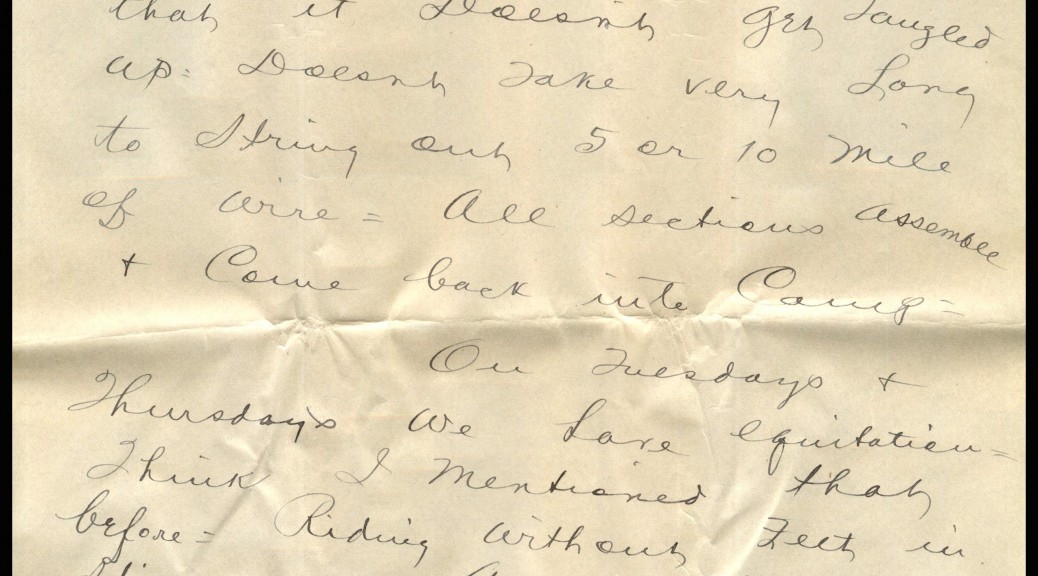 that it Doesnt get Tangled
up = Doesnt Take very Long
to String out 5 or 10 Mile
of wire = All sections assemble
+ Come back into Camp =
On Tuesdays +
Thursdays we have equitation =
Think I Mentioned that
before = Riding without Feet in